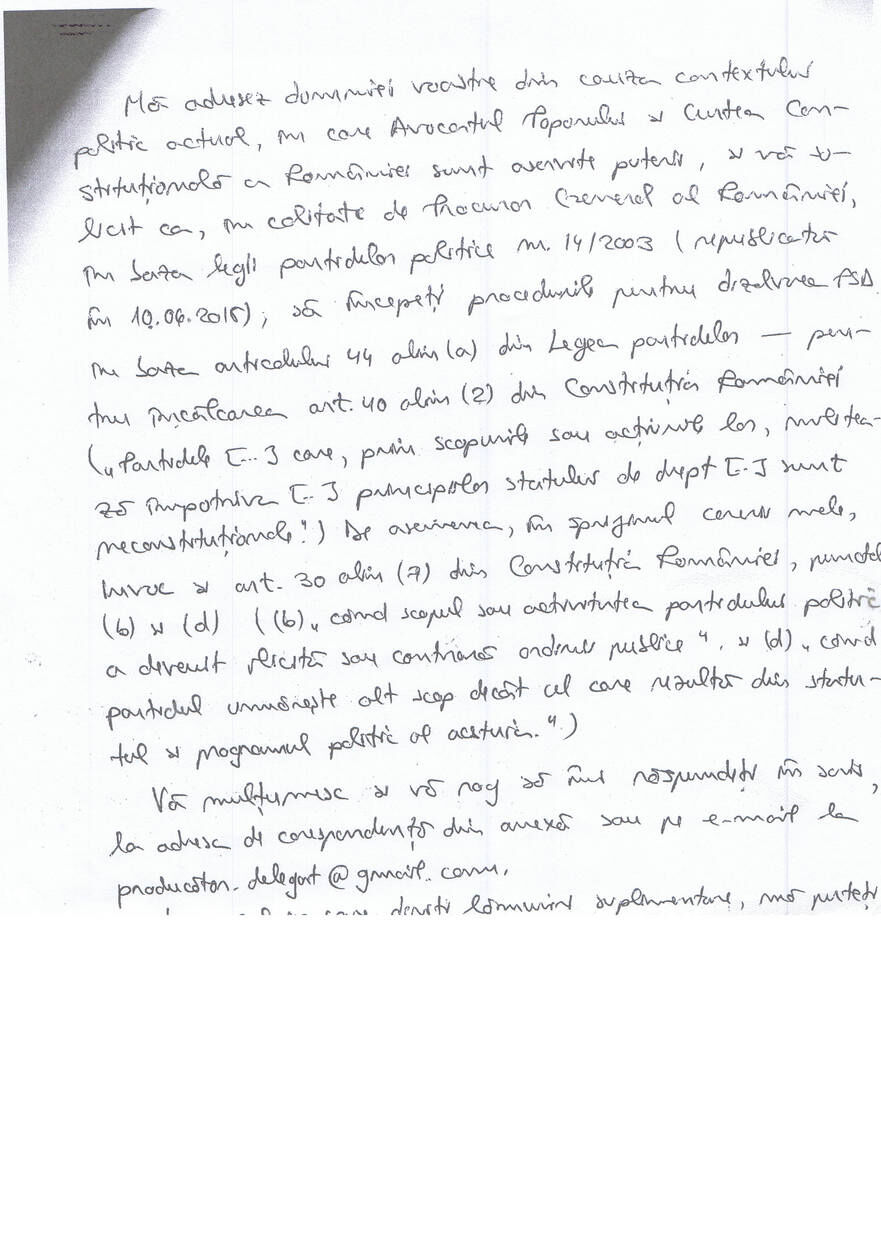 Mă adresez dumniei voastre din cauza contextului
politic actual, în care Avocatul Poporului și Curtea Con-
stituțională a României sunt aservite puterii, și vă so-
licit ca, în calitate de Procuror General al României,
în baza legii partidelor politice nr. 14/2003 (republicată
în 10.06.2015), să începeți procedurile pentru dizolvarea PSD
în baza articolului 44 alin (a) din Legea partidelor — pen-
tru încălcarea art. 40 alin (2) din Constituția României
(„Partidele [...] care, prin scopurile sau acțiunile lor, militea-
ză împotriva [..] principiilor statului de drept [..] sunt
neconstituționale") De asemenea, în sprijinul cererii mele,
invoc și art. 30 alin (7) din Constituția României, punctele
(b) și (d) ((b) „când scopul sau activitatea partidului politic
a devenit ilicită sau contrară ordinii publice", și (d) „când
partidul urmărește alt scop decât cel care rezultă din statu-
tul și programul politic al acestuia.")
Vă mulțumesc și vă rog să îmi răspundeți în scris,
la adresa de corespondență din anexă sau pe e-mail la
producator.delegat@gmail.com.
care doriți lămuriri suplimentare, mă puteți